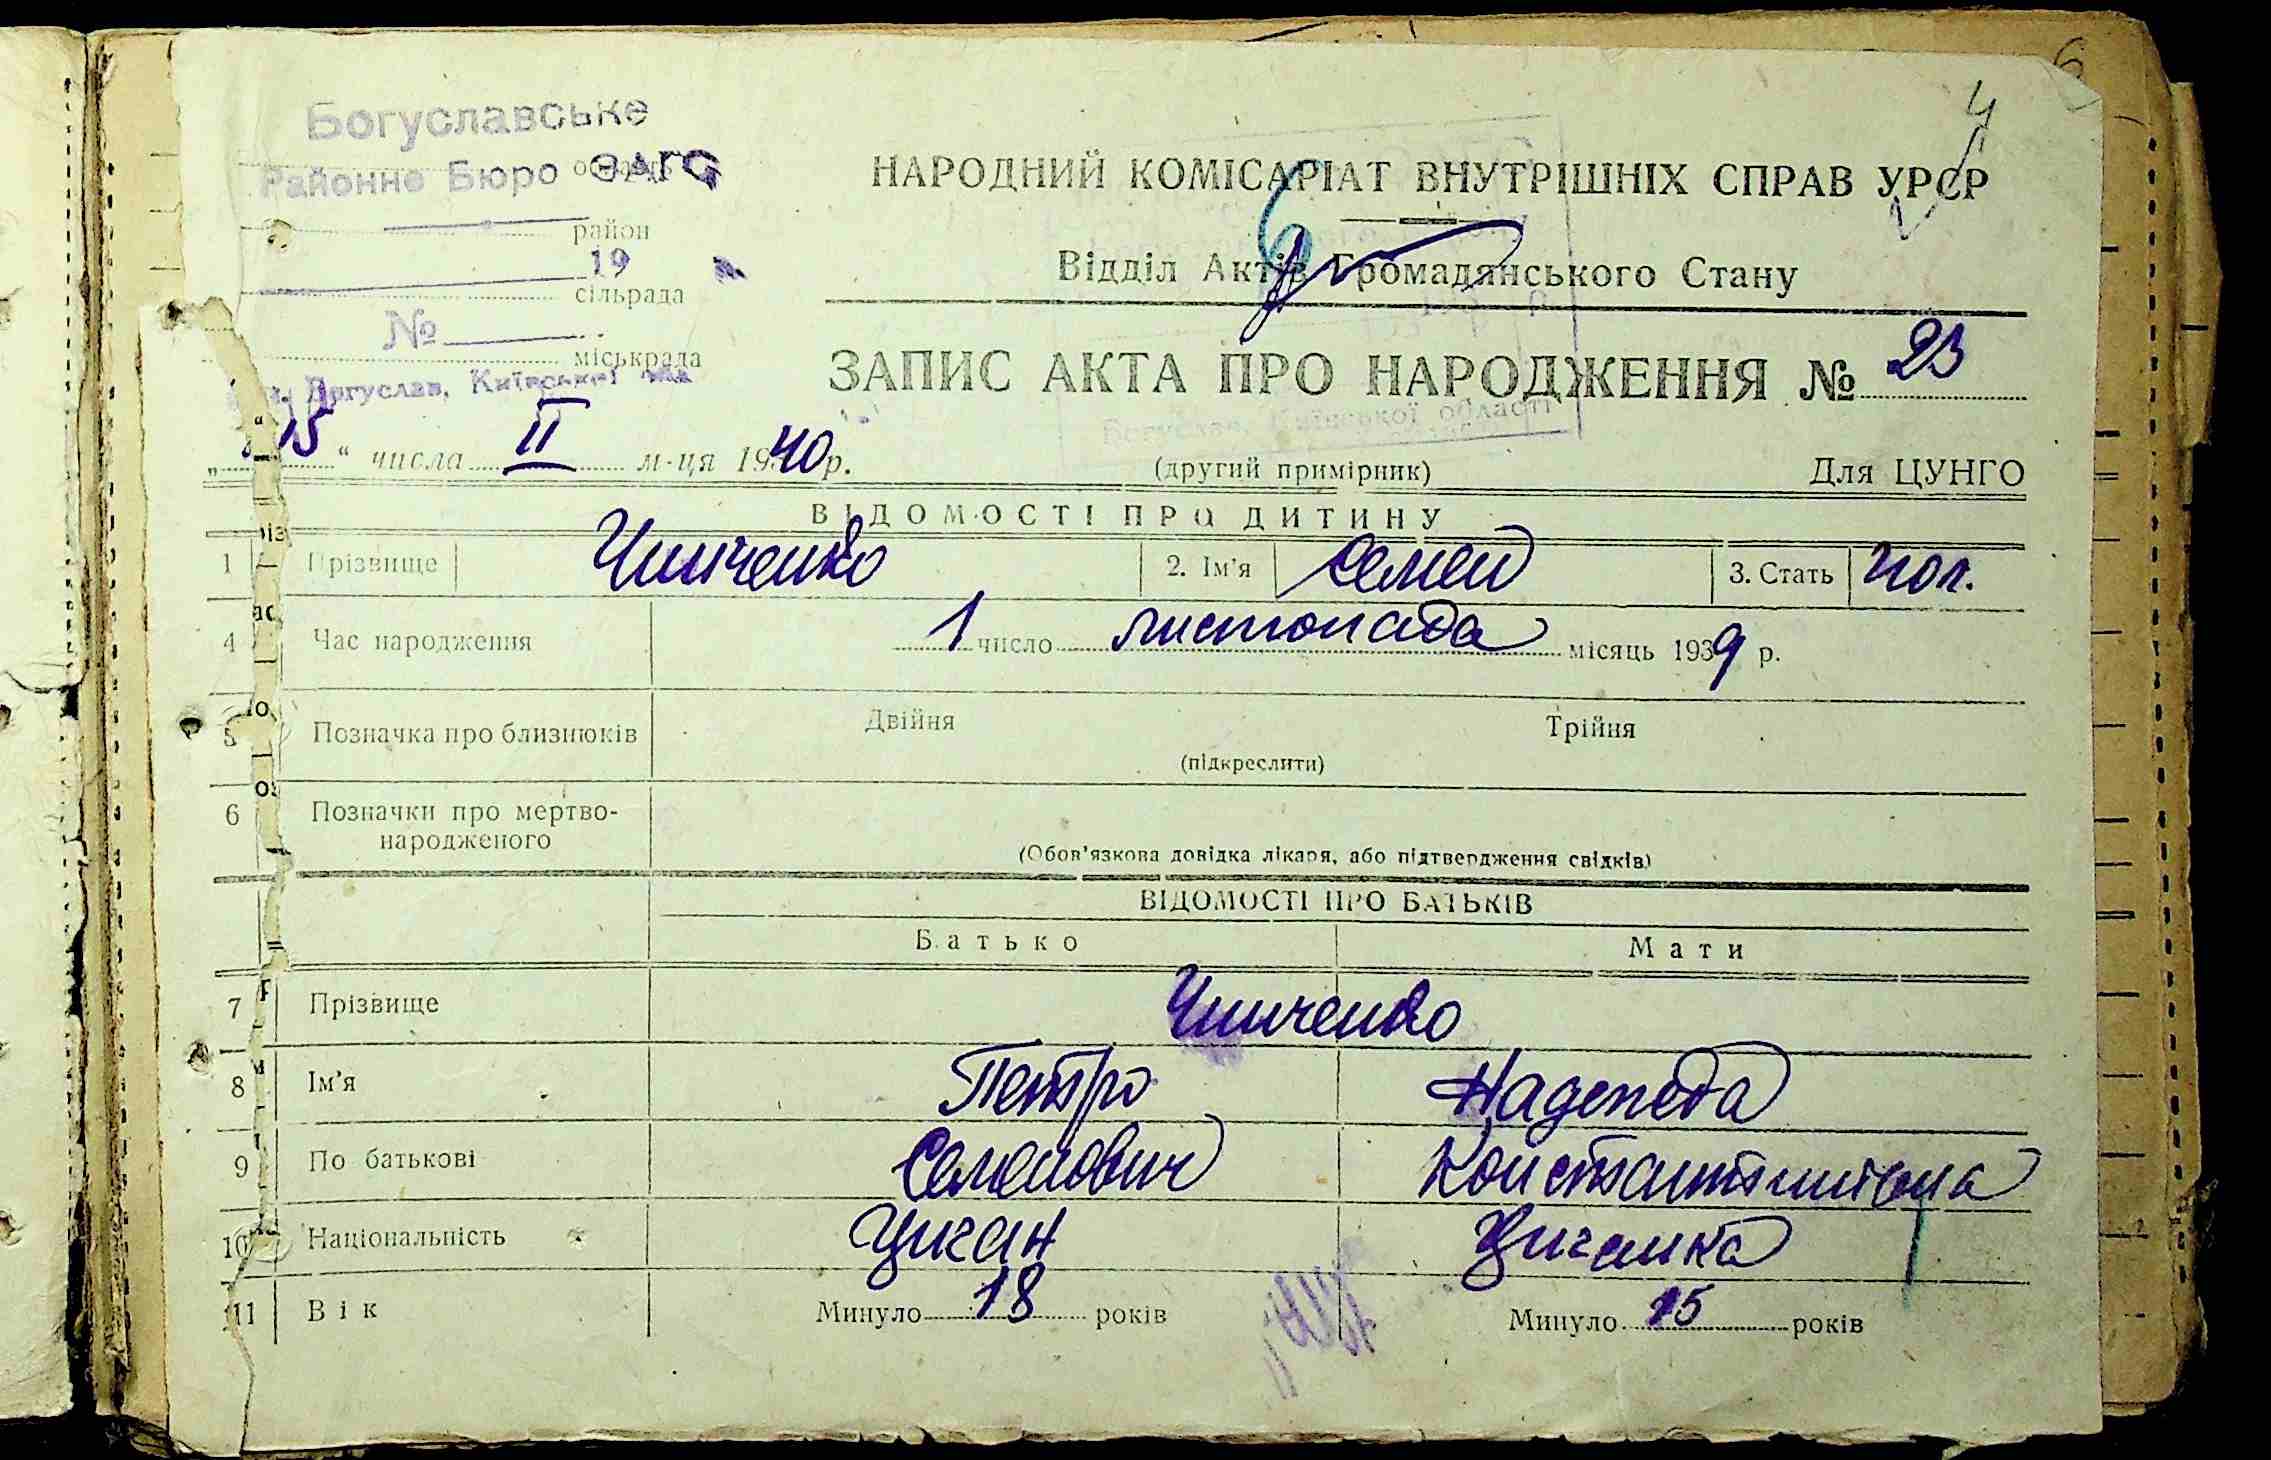 6
4
Богуславське
Районне Бюро ЗАГС
НАРОДНИЙ КОМІСАРІАТ ВНУТРІШНІХ СПРАВ УРСР
район
6
19
Відділ Актів Громадянського Стану
сільрада
№
міськрада
ЗАПИС АКТА ПРО НАРОДЖЕННЯ № 23
м. Богуслав, Київської обл.
Богуслав, Київської області
„15“ числа II м-ця 1940 р.
(другий примірник) Для ЦУНГО
ВІДОМОСТІ ПРО ДИТИНУ
1 Прізвище Чинченко 2. Ім'я Семен 3. Стать чол.
4 Час народження 1 число листопада місяць 1939 р.
5 Позначка про близнюків Двійня Трійня
(підкреслити)
6 Позначки про мертво-
народженого
(Обов'язкова довідка лікаря, або підтвердження свідків)
ВІДОМОСТІ ПРО БАТЬКІВ
Батько Мати
7 Прізвище Чинченко
8 Ім'я Петро Надежда
9 По батькові Семенович Константиновна
10 Національність Циган Циганка
11 Вік Минуло 18 років Минуло 15 років